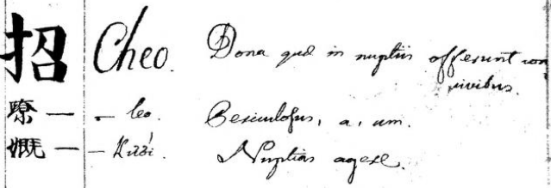 招 Cheo. Dona quæ in nuptiis offerunt con
vivibus.
嘹 — — leo. Bexiculosus, a, um.
嘅 — — Nuptias agere.